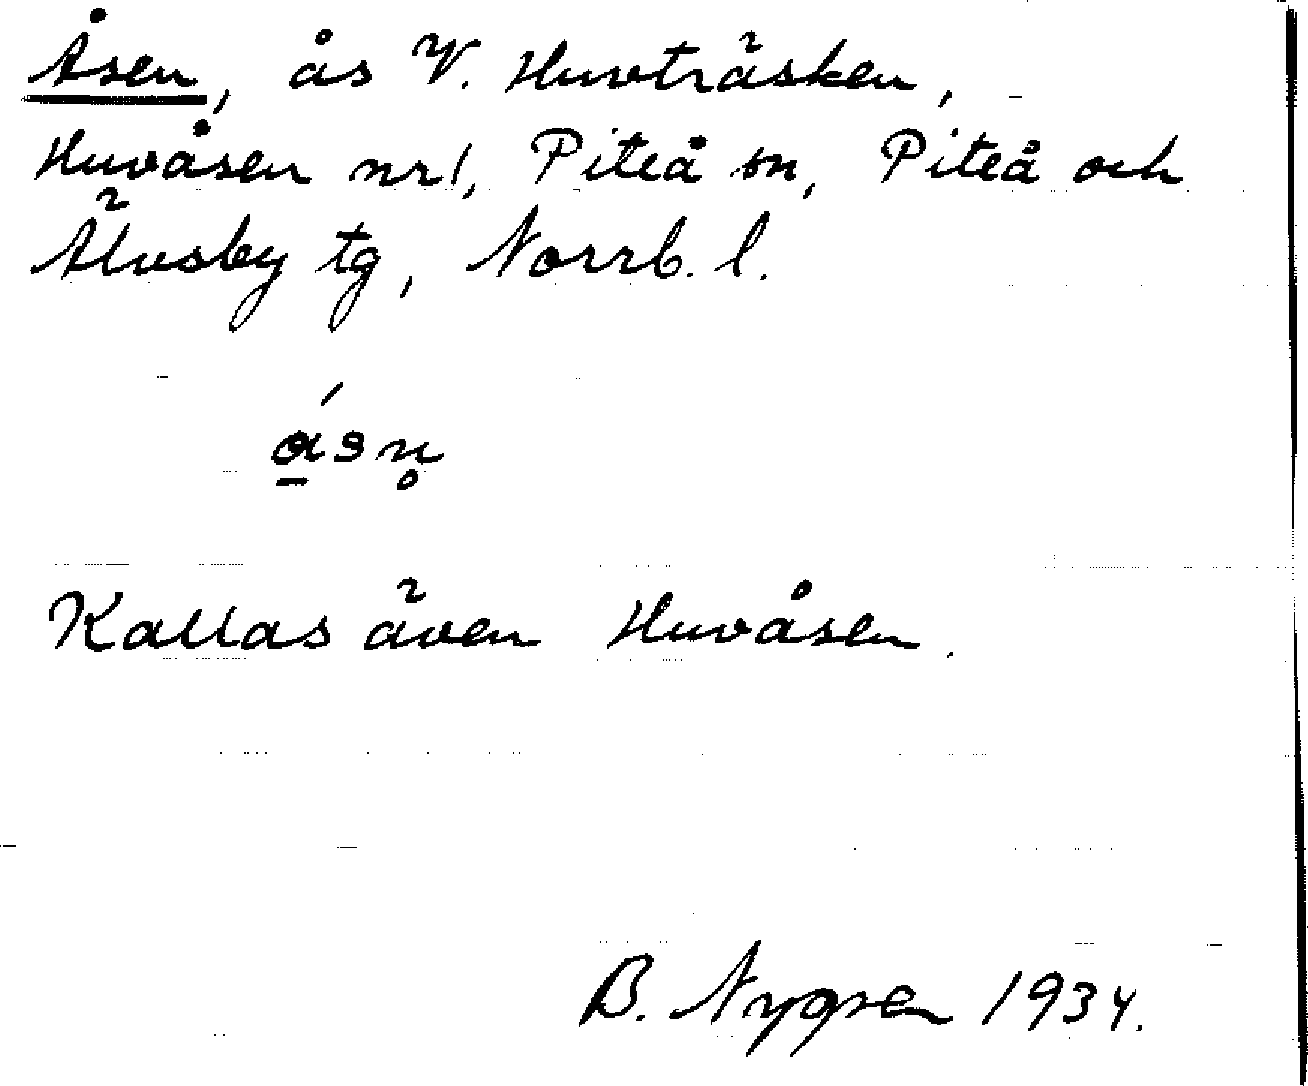 Åsen, ås V. Huvträsken,
Huvåsen nr 1, Piteå sn, Piteå och
Älvsby tg, Norrb. l.
ɑ̱́sn̥
Kallas även Huvåsen.
B. Nygren 1934.